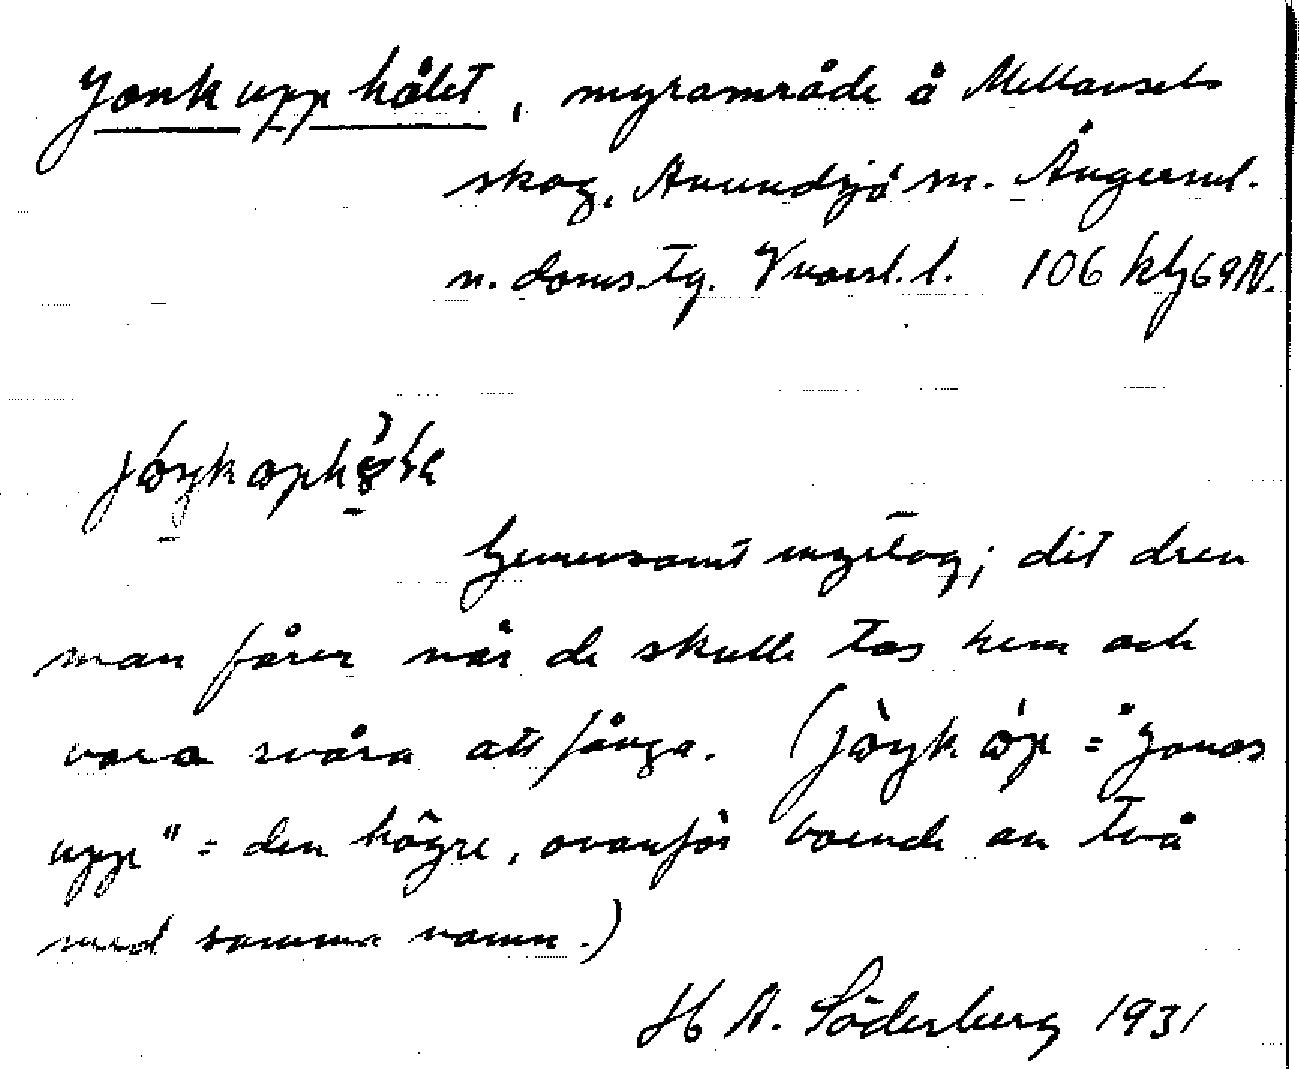 Jonk upp hålet, myrområde å Mellansels
skog, Anundsjö sn. Ångerml.
n. doms.tg. Vnorrl. l. 106
Gemensamt myrslog; dit dren
man fårer när de skulle tas hem och
vara svåra att fånga. (jòŋk óp = "Jonas
upp" = den högre, ovanför boende av två
med samma namn.)
H A. Söderberg 1931